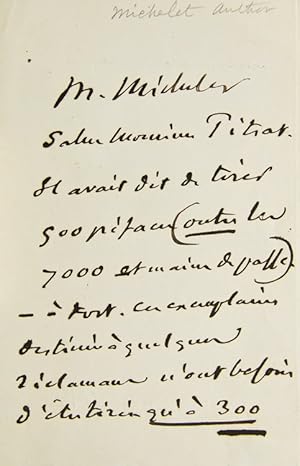 Michelet author
M. Michelet
Salue Monsieur Pitrat.
Il avait dit de tirer
500 préfaces (outre les
7000 et mains de passe)
— à tort. Ces exemplaires
destinés à quelques
réclamans n'ont besoin
d'être tirés qu'à 300